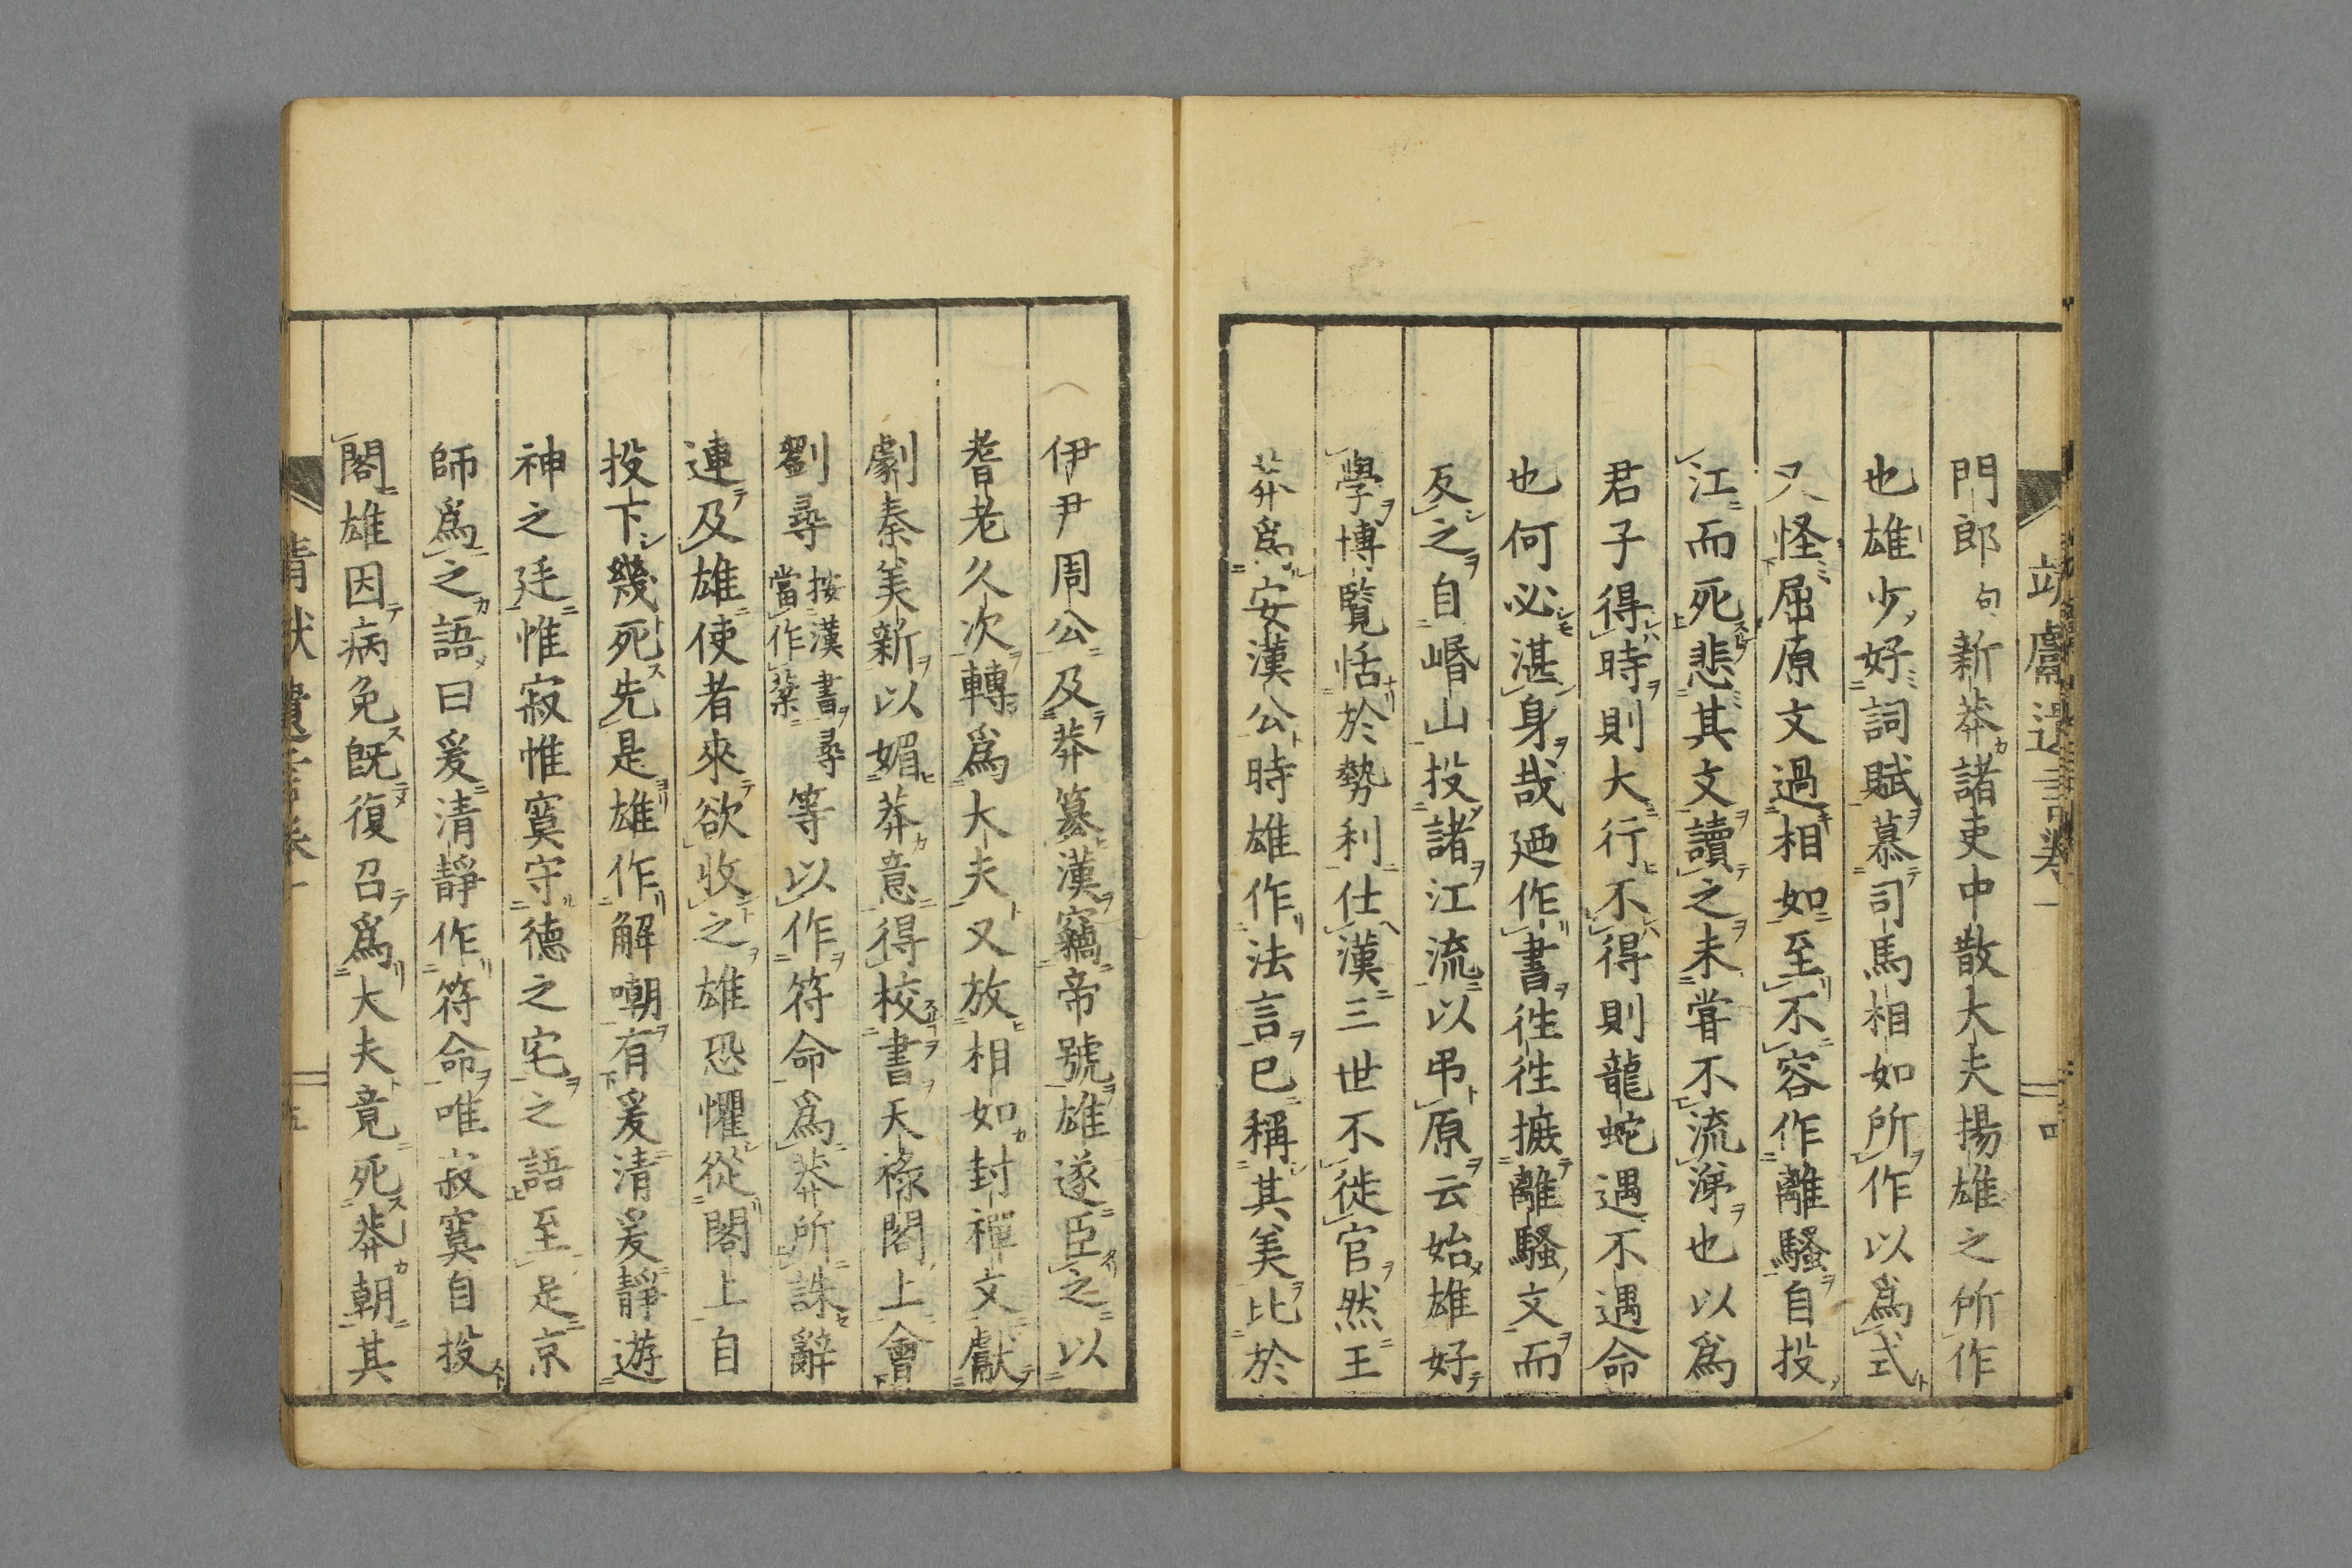 靖獻遺言卷一
門郎句新莽諸吏中散大夫揚雄之所作
也雄少好詞賦慕司馬相如所作以爲式
又怪屈原文過相如至不容作離騷自投
江而死悲其文讀之未嘗不流涕也以爲
君子得時則大行不得則龍蛇遇不遇命
也何必湛身哉廼作書徃徃摭離騷文而
反之自㟭山投諸江流以弔原云始雄好
學博覽恬於勢利仕漢三世不徙官然王
莽爲安漢公時雄作法言已稱其美比於
伊尹周公及莽簒漢竊帝號雄遂臣之以
耆老久次轉爲大夫又放相如封禪文獻
劇秦美新以媚莽意得校書天祿閣上會
劉尋按漢書尋當作棻等以作符命爲莽所誅辭
連及雄使者來欲收之雄恐懼從閣上自
投下幾死先是雄作解嘲有爰清爰靜遊
神之廷惟寂惟寞守德之宅之語至是京
師爲之語曰爰清靜作符命唯寂寞自投
閣雄因病免旣復召爲大夫竟死莽朝其